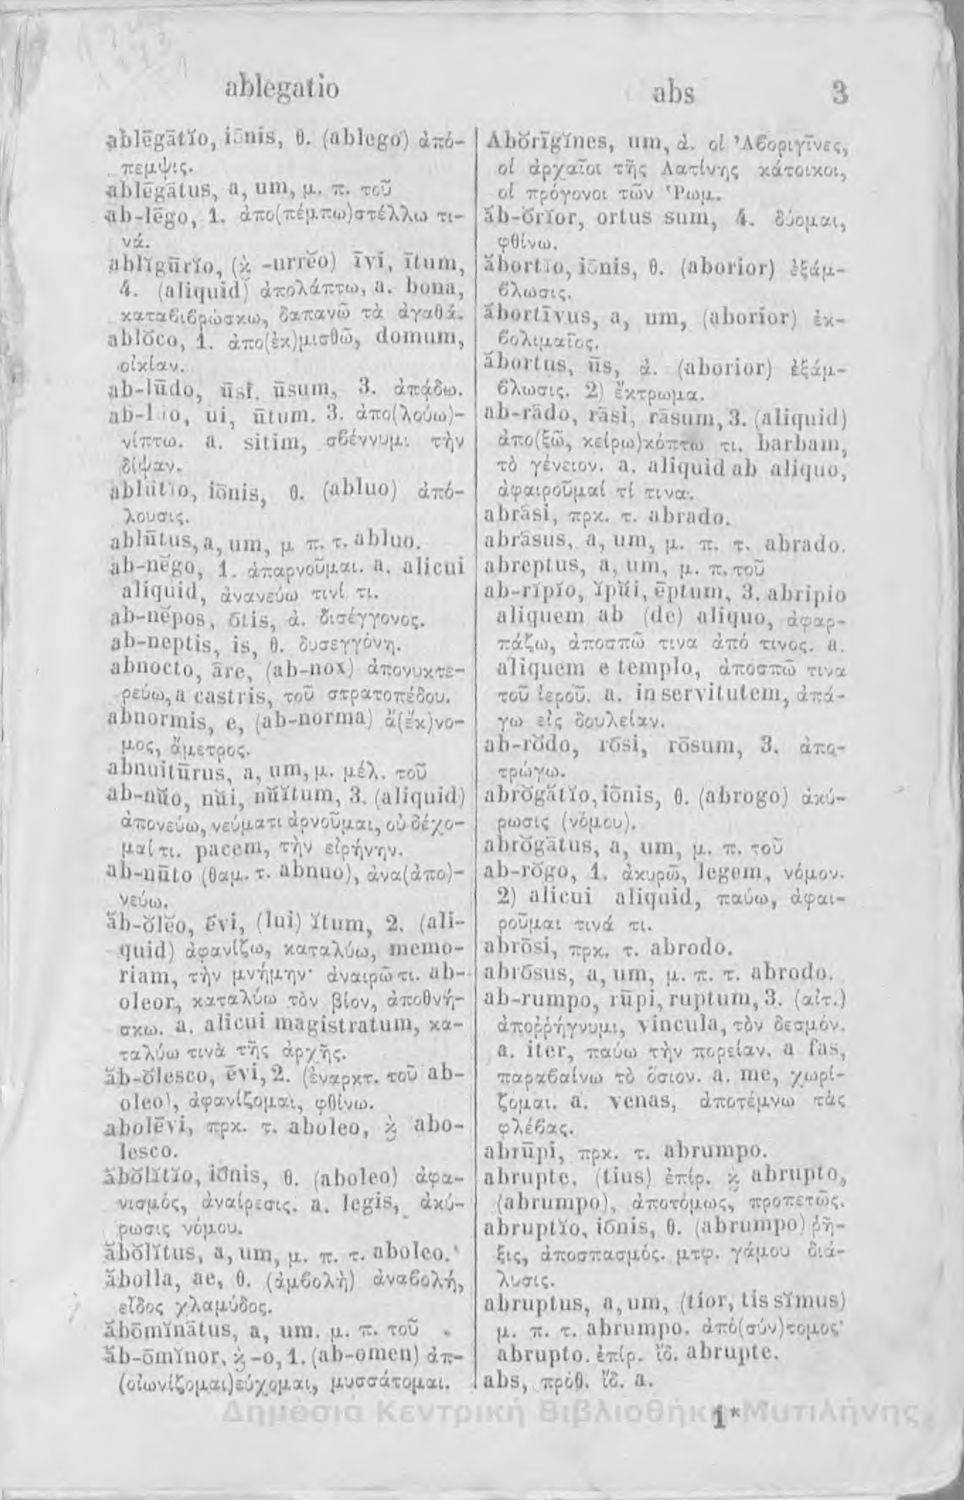 ablegatio
abs
3
ablēgātĭo, iōnis, θ. (ablego) ἀπό-
πεμψις.
ablēgātus, a, um, μ. π. τοῦ
ab-lēgo, 1. ἀπο(πέμπω)στέλλω τι-
νά.
ablĭgūrĭo, (ϗ -urrĕo) īvi, ītum,
4. (aliquid) ἀπολάπτω, a. bona,
καταβιβρώσκω, δαπανῶ τὰ ἀγαθά.
ablŏco, 1. ἀπο(ἐκ)μισθῶ, domum,
οἰκίαν.
ab-lūdo, ūsi, ūsum, 3. ἀπάδω.
ab-luo, ui, ūtum. 3. ἀπο(λούω)-
νίπτω. a. sitim, σβέννυμι τὴν
δίψαν.
ablūtio, iōnis, θ. (abluo) ἀπό-
λουσις.
ablūtus, a, um, μ. π. τ. abluo.
ab-nĕgo, 1. ἀπαρνοῦμαι. a. alicui
aliquid, ἀνανεύω τινί τι.
ab-nĕpos, ōtis, ἀ. δισέγγονος.
ab-neptis, is, θ. δυσεγγόνη.
abnocto, āre, (ab-nox) ἀπονυκτε-
ρεύω, a castris, τοῦ στρατοπέδου.
abnormis, e, (ab-norma) ἄ(ἔκ)νο-
μος, ἄμετρος.
abnuitūrus, a, um, μ. μέλ. τοῦ
ab-nŭo, nŭi, nŭĭtum, 3. (aliquid)
ἀπονεύω, νεύματι ἀρνοῦμαι, οὐ δέχο-
μαί τι. pacem, τὴν εἰρήνην.
ab-nūto (θαμ. τ. abnuo), ἀνα(ἀπο)-
νεύω.
ăb-ŏlĕo, ēvi, (lui) ĭtum, 2. (ali-
quid) ἀφανίζω, καταλύω, memo-
riam, τὴν μνήμην· ἀναιρῶ τι. ab-
oleor, καταλύω τὸν βίον, ἀποθνή-
σκω. a. alicui magistratum, κα-
ταλύω τινὰ τῆς ἀρχῆς.
ăb-ŏlesco, ēvi, 2. (ἐναρκτ. τοῦ ab-
oleo), ἀφανίζομαι, φθίνω.
abolēvi, πρκ. τ. aboleo, ϗ abo-
lesco.
ăbŏlĭtĭo, iōnis, θ. (aboleo) ἀφα-
νισμός, ἀναίρεσις. a. legis, ἀκύ-
ρωσις νόμου.
ăbŏlĭtus, a, um, μ. π. τ. aboleo.
ăbolla, ae, θ. (ἀμβολὴ) ἀναβολή,
εἶδος χλαμύδος.
ăbōmĭnātus, a, um. μ. π. τοῦ
ăb-ōmĭnor, ϗ -o, 1. (ab-omen) ἀπ-
(οἰωνίζομαι)εύχομαι, μυσσάτομαι.
Abŏrīgĭnes, um, ἀ. οἱ Ἀβοριγῖνες,
οἱ ἀρχαῖοι τῆς Λατίνης κάτοικοι,
οἱ πρόγονοι τῶν Ῥωμ.
ăb-ŏrĭor, ortus sum, 4. δύομαι,
φθίνω.
ăbortĭo, iōnis, θ. (aborior) ἐξάμ-
βλωσις.
ăbortīvus, a, um, (aborior) ἐκ-
βολιμαῖος.
ăbortus, ūs, ἀ. (aborior) ἐξάμ-
βλωσις. 2) ἔκτρωμα.
ab-rādo, rāsi, rāsum, 3. (aliquid)
ἀπο(ξῶ, κείρω)κόπτω τι. barbam,
τὸ γένειον. a. aliquid ab aliquo,
ἀφαιροῦμαί τί τινα.
abrāsi, πρκ. τ. abrado.
abrāsus, a, um, μ. π. τ. abrado.
abreptus, a, um, μ. π. τοῦ
ab-rĭpĭo, ĭpŭi, ēptum, 3. abripio
aliquem ab (de) aliquo, ἀφαρ-
πάζω, ἀποσπῶ τινα ἀπό τινος. a.
aliquem e templo, ἀποσπῶ τινα
τοῦ ἱεροῦ. a. in servitutem, ἀπά-
γω εἰς δουλείαν.
ab-rōdo, rōsi, rōsum, 3. ἀπο-
τρώγω.
abrŏgātĭo, iōnis, θ. (abrogo) ἀκύ-
ρωσις (νόμου).
abrŏgātus, a, um, μ. π. τοῦ
ab-rŏgo, 1. ἀκυρῶ, legem, νόμον.
2) alicui aliquid, παύω, ἀφαι-
ροῦμαι τινά τι.
abrōsi, πρκ. τ. abrodo.
abrōsus, a, um, μ. π. τ. abrodo.
ab-rumpo, rūpi, ruptum, 3. (αἰτ.)
ἀποῤῥήγνυμι, vincula, τὸν δεσμόν.
a. iter, παύω τὴν πορείαν. a fas,
παραβαίνω τὸ ὅσιον. a. me, χωρί-
ζομαι. a. venas, ἀποτέμνω τὰς
φλέβας.
abrūpi, πρκ. τ. abrumpo.
abrupte, (tius) ἐπίρ. ϗ abrupto,
(abrumpo), ἀποτόμως, προπετῶς.
abruptĭo, iōnis, θ. (abrumpo) ῥῆ-
ξις, ἀποσπασμός. μτφ. γάμου διά-
λυσις.
abruptus, a, um, (tior, tissĭmus)
μ. π. τ. abrumpo. ἀπό(σύν)τομος·
abrupto. ἐπίρ. ἴδ. abrupte.
abs, πρόθ. ἴδ. a.
1*
Δημόσια Κεντρική Βιβλιοθήκη Μυτιλήνης